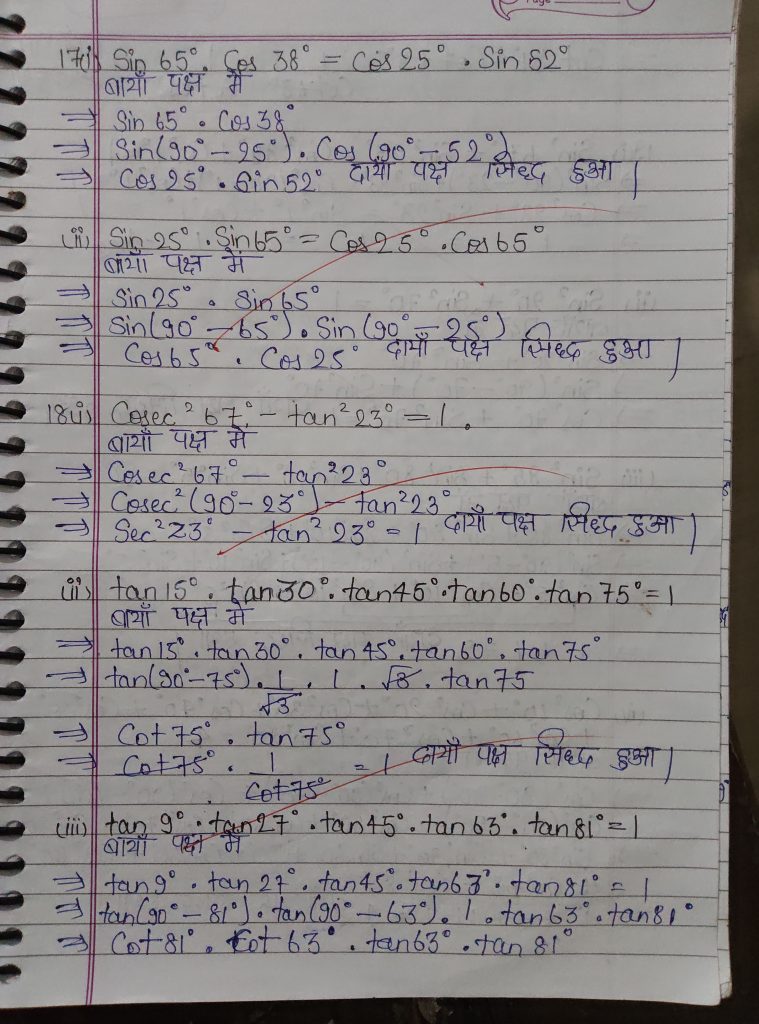 Page
17(i) Sin 65°. Cos 38° = Cos 25° . Sin 52°
बायाँ पक्ष में
⇒ Sin 65° . Cos 38°
⇒ Sin(90° – 25°) . Cos (90° – 52°)
⇒ Cos 25° . Sin 52° दायाँ पक्ष सिध्द हुआ |
(ii) Sin 25° . Sin 65° = Cos 25° . Cos 65°
बायाँ पक्ष में
⇒ Sin 25° . Sin 65°
⇒ Sin(90° – 65°) . Sin (90° – 25°)
⇒ Cos 65° . Cos 25° दायाँ पक्ष सिध्द हुआ |
18(i) Cosec² 67° – tan² 23° = 1 .
बायाँ पक्ष में
⇒ Cosec² 67° – tan² 23°
⇒ Cosec² (90° – 23°) – tan² 23°
⇒ Sec² 23° – tan² 23° = 1 दायाँ पक्ष सिध्द हुआ |
(ii) tan 15° . tan 30° . tan 45° . tan 60° . tan 75° = 1
बायाँ पक्ष में
⇒ tan 15° . tan 30° . tan 45° . tan 60° . tan 75°
⇒ tan(90° – 75°) . 1/√3 . 1 . √3 . tan 75
⇒ Cot 75° . tan 75°
⇒ Cot 75° . 1/Cot 75° = 1 दायाँ पक्ष सिध्द हुआ |
(iii) tan 9° . tan 27° . tan 45° . tan 63° . tan 81° = 1
बायाँ पक्ष में
⇒ tan 9° . tan 27° . tan 45° . tan 63° . tan 81° = 1
⇒ tan(90° – 81°) . tan(90° – 63°) . 1 . tan 63° . tan 81°
⇒ Cot 81° . Cot 63° . tan 63° . tan 81°